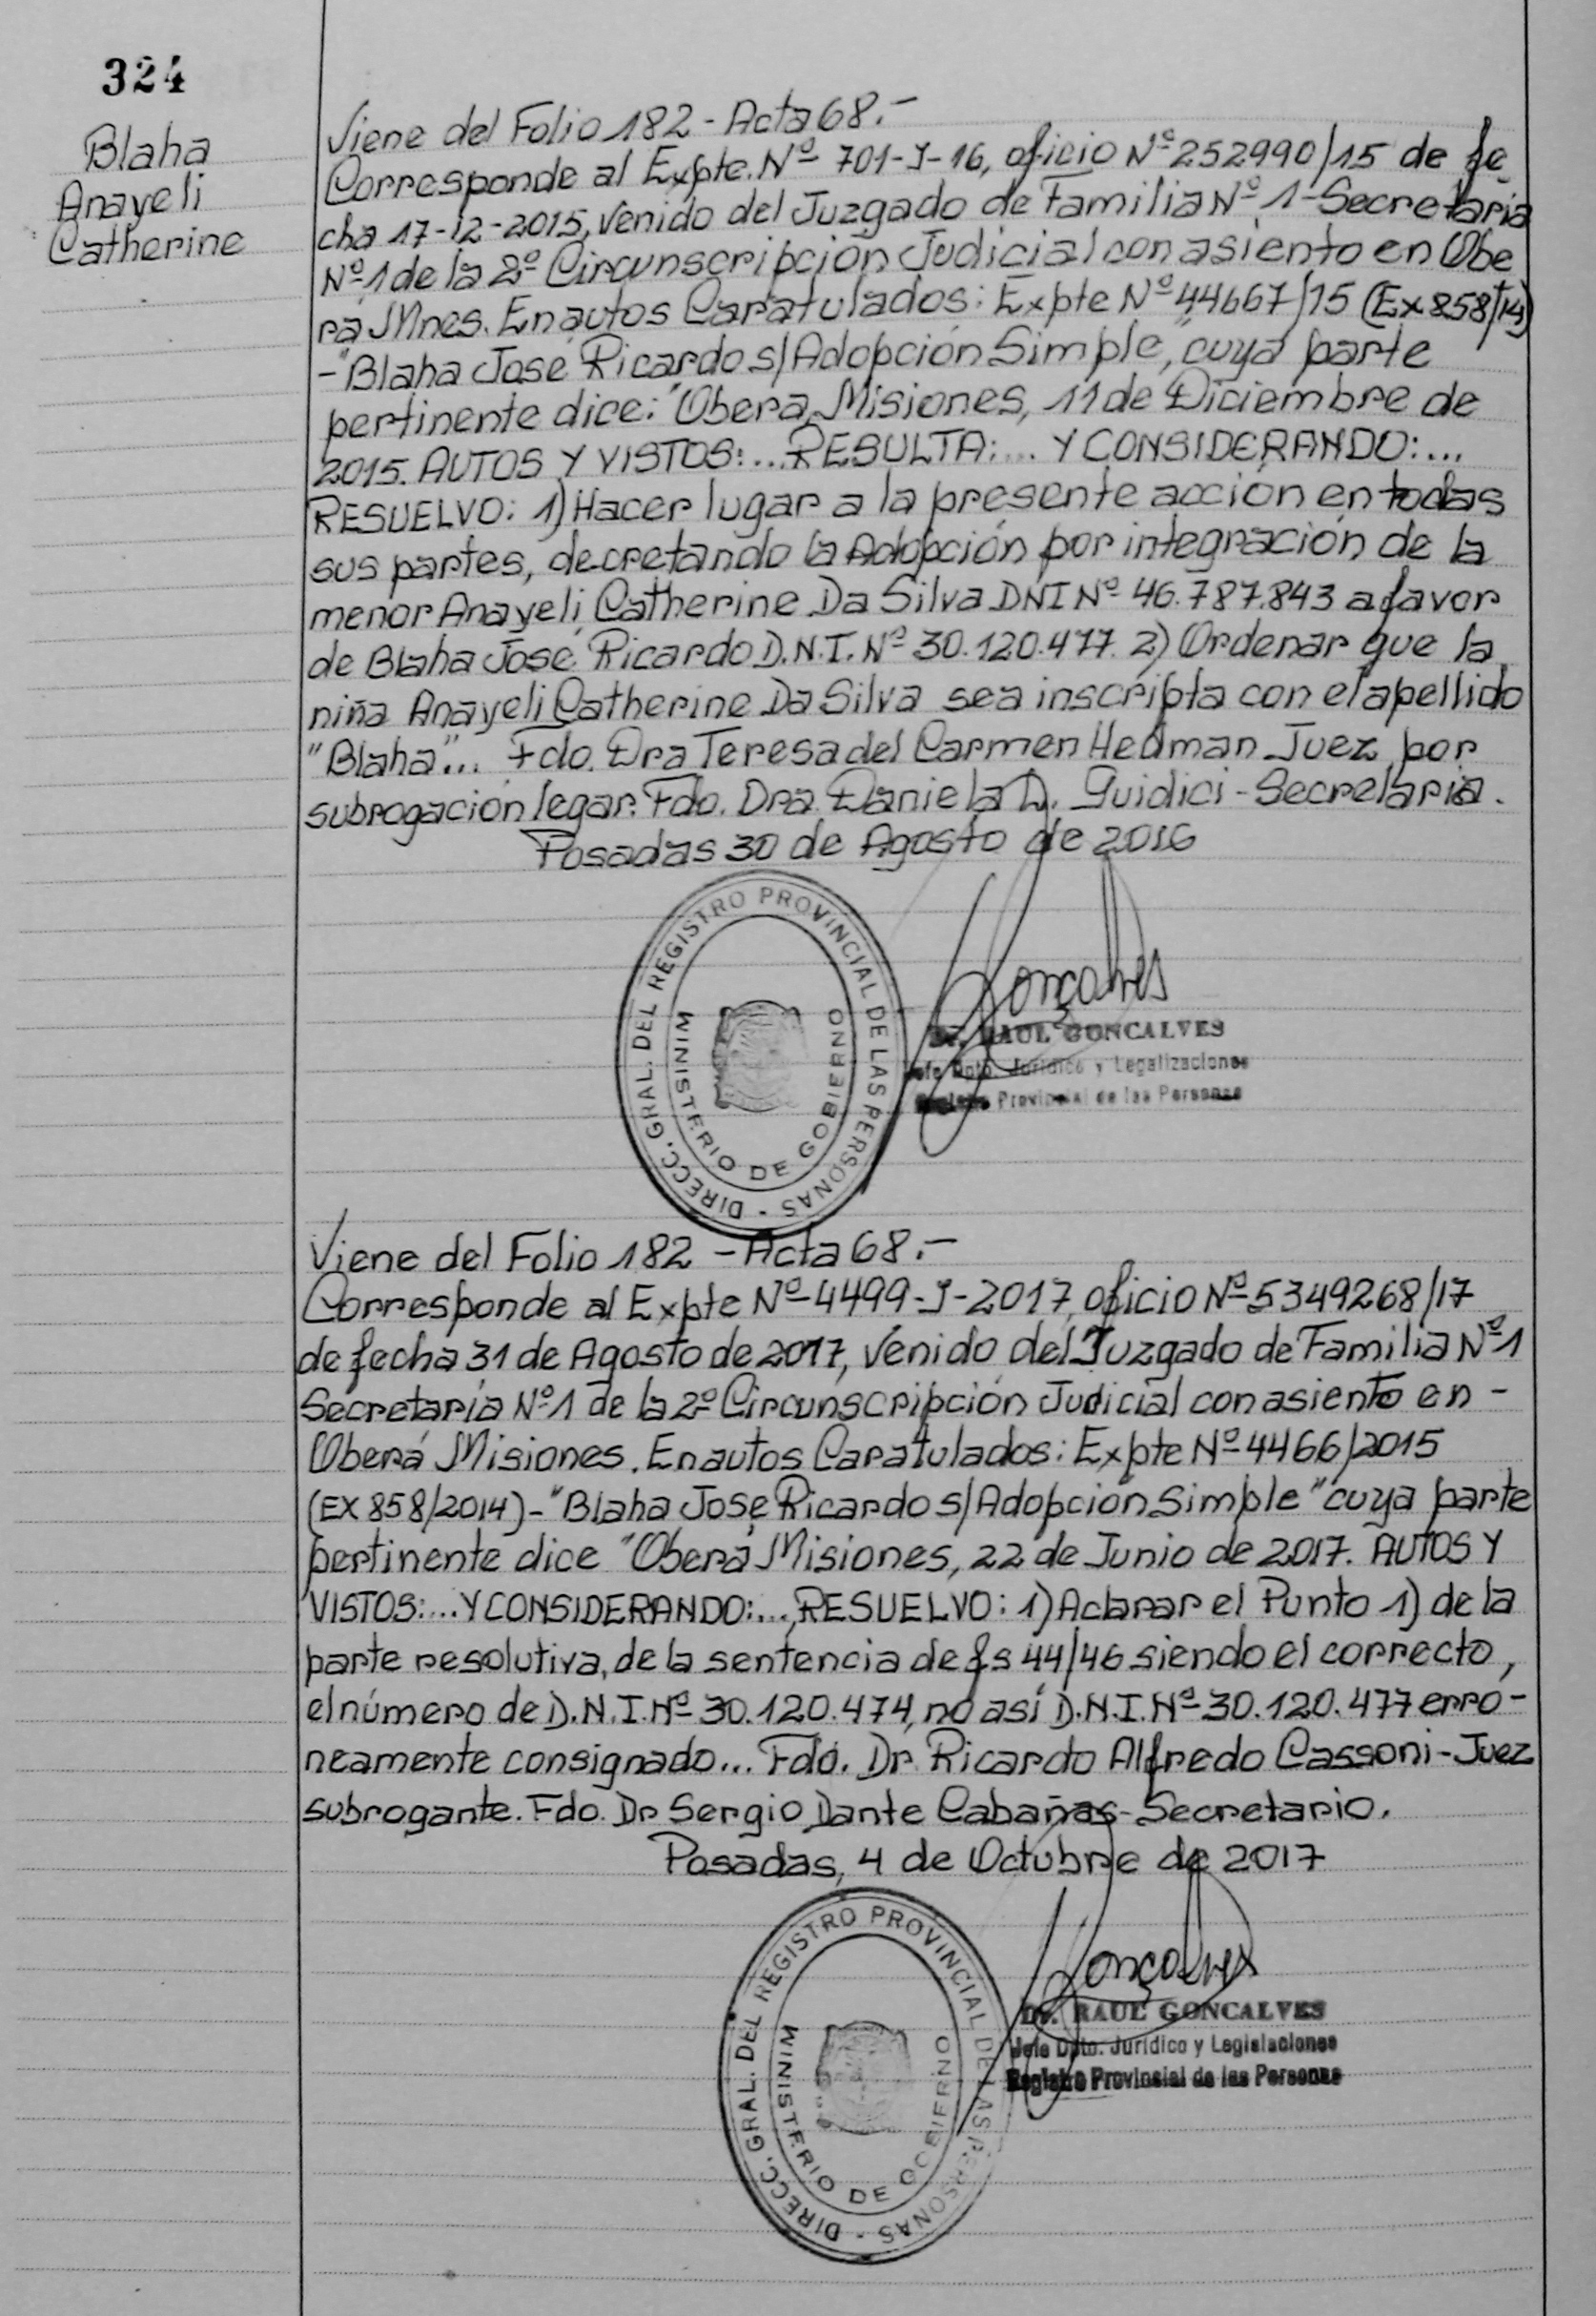 324
Blaha
Anayeli
Catherine
Viene del Folio 182 - Acta 68.-
Corresponde al Expte. Nº 701-J-16, oficio Nº 252990/15 de fe
cha 17-12-2015, venido del Juzgado de Familia Nº 1-Secretaria
Nº 1 de la 2º Circunscripción Judicial con asiento en Obe
rá Mnes. En autos Caratulados: Expte Nº 44667/15 (Ex 858/14)
-"Blaha José Ricardo s/Adopción Simple", cuya parte
pertinente dice: "Obera, Misiones, 11 de Diciembre de
2015. AUTOS Y VISTOS:... RESULTA:... Y CONSIDERANDO:...
RESUELVO: 1) Hacer lugar a la presente acción en todas
sus partes, decretando la Adopción por integración de la
menor Anayeli Catherine Da Silva DNI Nº 46.787.843 a favor
de Blaha José Ricardo D.N.I. Nº 30.120.477. 2) Ordenar que la
niña Anayeli Catherine Da Silva sea inscripta con el apellido
"Blaha"... Fdo. Dra Teresa del Carmen Hedman Juez por
subrogación legar. Fdo. Dra. Daniela D. Guidici - Secretaria.
Posadas 30 de Agosto de 2016
DIRECC. GRAL. DEL REGISTRO PROVINCIAL DE LAS PERSONAS -
MINISTERIO DE GOBIERNO
Gonçalves
Dr. RAUL GONCALVES
Jefe Dpto. Jurídico y Legalizaciones
Registro Provincial de las Personas
Viene del Folio 182 - Acta 68.-
Corresponde al Expte Nº 4499-J-2017, oficio Nº 5349268/17
de fecha 31 de Agosto de 2017, venido del Juzgado de Familia Nº 1
Secretaria Nº 1 de la 2º Circunscripción Judicial con asiento en -
Oberá Misiones. En autos Caratulados: Expte Nº 4466/2015
(EX 858/2014) - "Blaha Jose Ricardo s/Adopción Simple" cuya parte
pertinente dice "Oberá Misiones, 22 de Junio de 2017. AUTOS Y
VISTOS:... Y CONSIDERANDO:... RESUELVO: 1) Aclarar el Punto 1) de la
parte resolutiva, de la sentencia de fs 44/46 siendo el correcto,
el número de D.N.I. Nº 30.120.474, no así D.N.I. Nº 30.120.477 erro-
neamente consignado... Fdo. Dr. Ricardo Alfredo Cassoni - Juez
subrogante. Fdo. Dr Sergio Dante Cabañas - Secretario.
Posadas, 4 de Octubre de 2017
DIRECC. GRAL. DEL REGISTRO PROVINCIAL DE LAS PERSONAS -
MINISTERIO DE GOBIERNO
Gonçalves
Dr. RAUL GONCALVES
Jefe Dpto. Jurídico y Legislaciones
Registro Provincial de las Personas